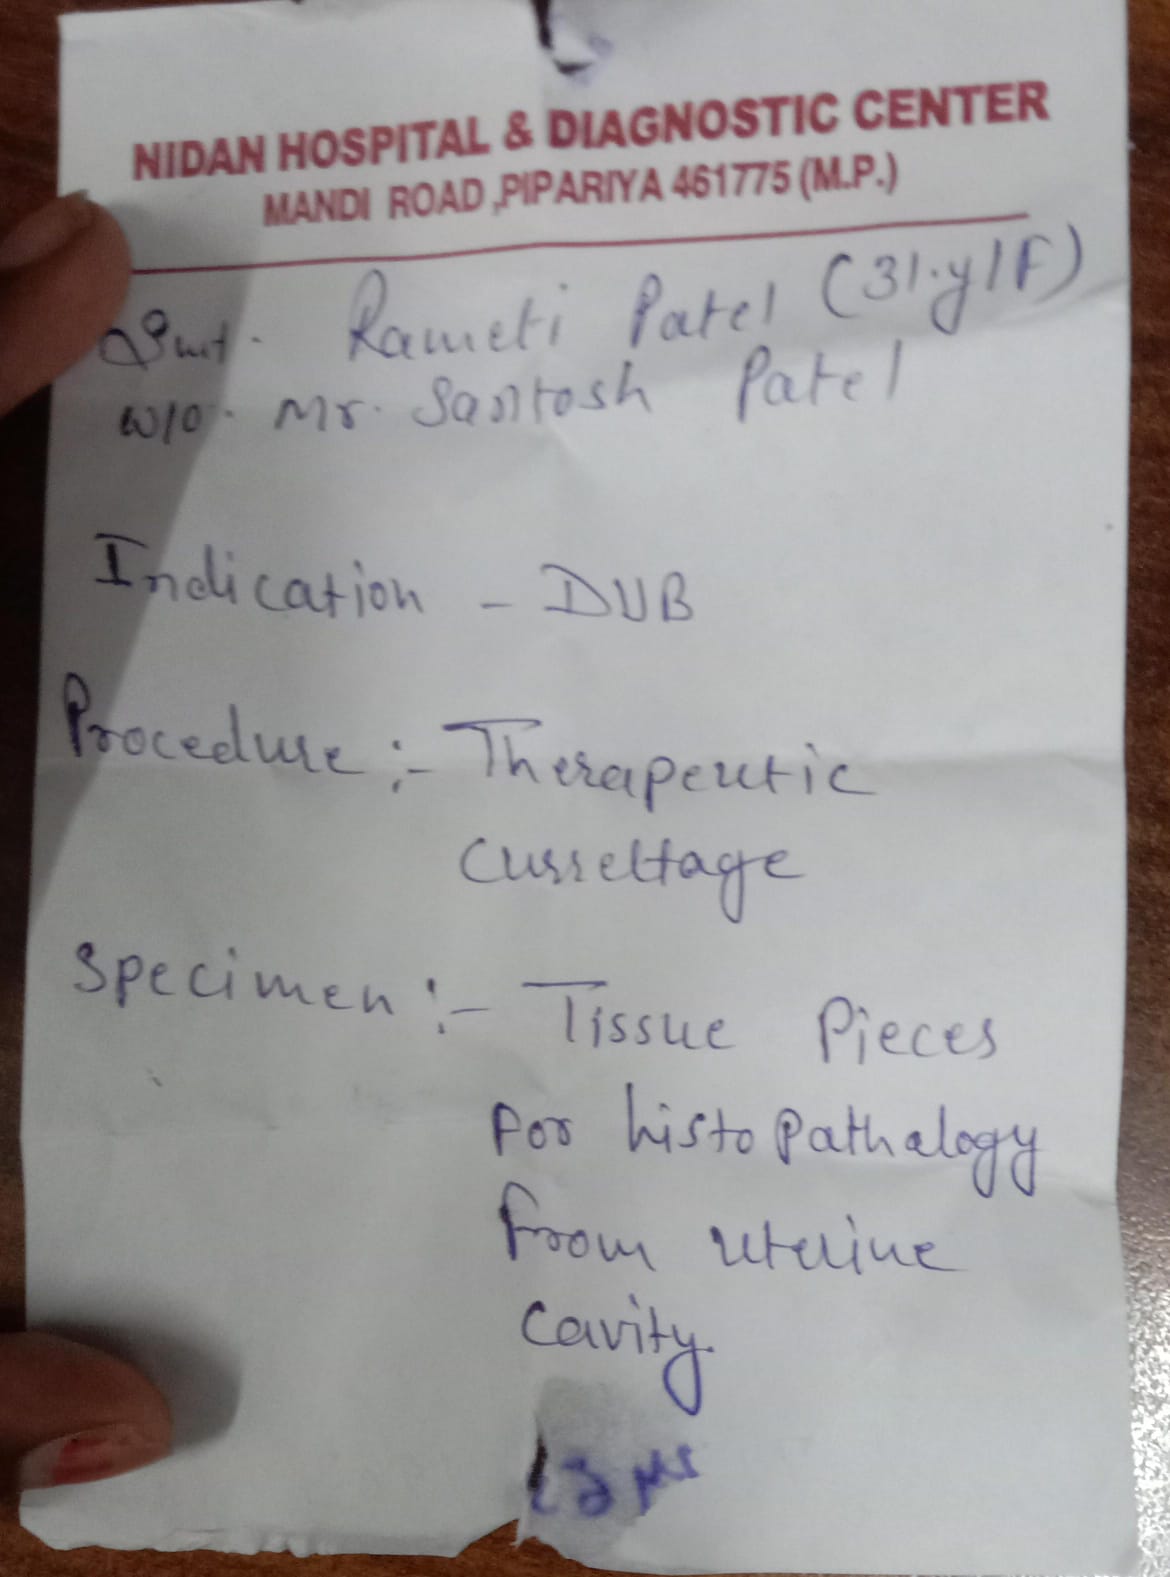 NIDAN HOSPITAL & DIAGNOSTIC CENTER
MANDI ROAD ,PIPARIYA 461775 (M.P.)
Smt. Rameti Patel (31.y/F)
w/o. Mr. Santosh Patel
Indication - DUB
Procedure :- Therapeutic
Currettage
Specimen :- Tissue Pieces
For histopathalogy
From uterine
Cavity.